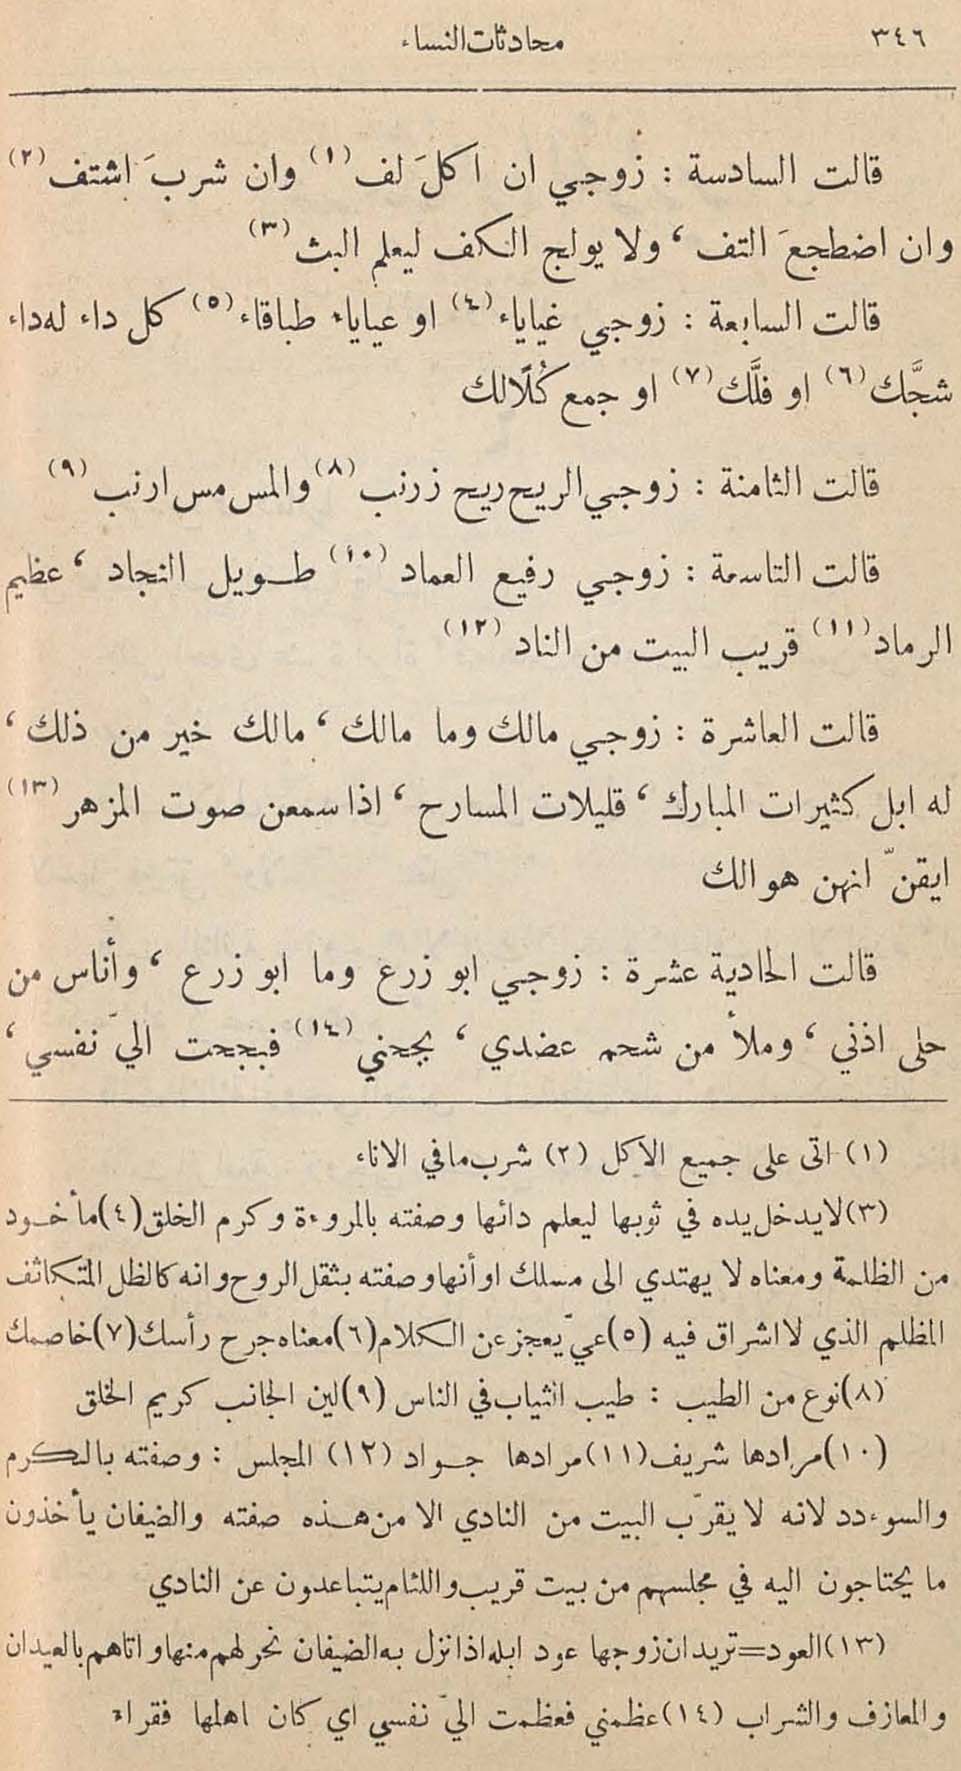 ٣٤٦
محادثات النساء
قالت السادسة : زوجي ان اكلَ لف (١) وان شربَ اشتف (٢)
وان اضطجعَ التف ، ولا يولج الكف ليعلم البث (٣)
قالت السابعة : زوجي غياياء (٤) او عياياء طباقاء (٥) كل داء له داء
شجَّك (٦) او فلَّك (٧) او جمع كُلاًّ لك
قالت الثامنة : زوجي الريح ريح زرنب (٨) والمس مس ارنب (٩)
قالت التاسعة : زوجي رفيع العماد (١٠) طويل النجاد ، عظيم
الرماد (١١) قريب البيت من الناد (١٢)
قالت العاشرة : زوجي مالك وما مالك ، مالك خير من ذلك ،
له ابل كثيرات المبارك ، قليلات المسارح ، اذا سمعن صوت المزهر (١٣)
ايقنّ انهن هوالك
قالت الحادية عشرة : زوجي ابو زرع وما ابو زرع ، وأناس من
حلى اذني ، وملأ من شحم عضدي ، بجحني (١٤) فبجحت اليّ نفسي ،
(١) اتى على جميع الاكل (٢) شرب ما في الاناء
(٣) لا يدخل يده في ثوبها ليعلم دائها وصفته بالمروءة وكرم الخلق (٤) مأخود
من الظلمة ومعناه لا يهتدي الى مسلك او أنها وصفته بثقل الروح وانه كالظل المتكاثف
المظلم الذي لا اشراق فيه (٥) عيّ يعجز عن الكلام (٦) معناه جرح رأسك (٧) خاصمك
(٨) نوع من الطيب : طيب الثياب في الناس (٩) لين الجانب كريم الخلق
(١٠) مرادها شريف (١١) مرادها جواد (١٢) المجلس : وصفته بالكرم
والسوءدد لانه لا يقرّب البيت من النادي الا من هذه صفته والضيفان يأخذون
ما يحتاجون اليه في مجلسهم من بيت قريب واللئام يتباعدون عن النادي
(١٣) العود=تريد ان زوجها عود ابله اذا نزل به الضيفان نحر لهم منها واتاهم بالعيدان
والمعازف والشراب (١٤) عظمني فعظمت اليّ نفسي اي كان اهلها فقراء